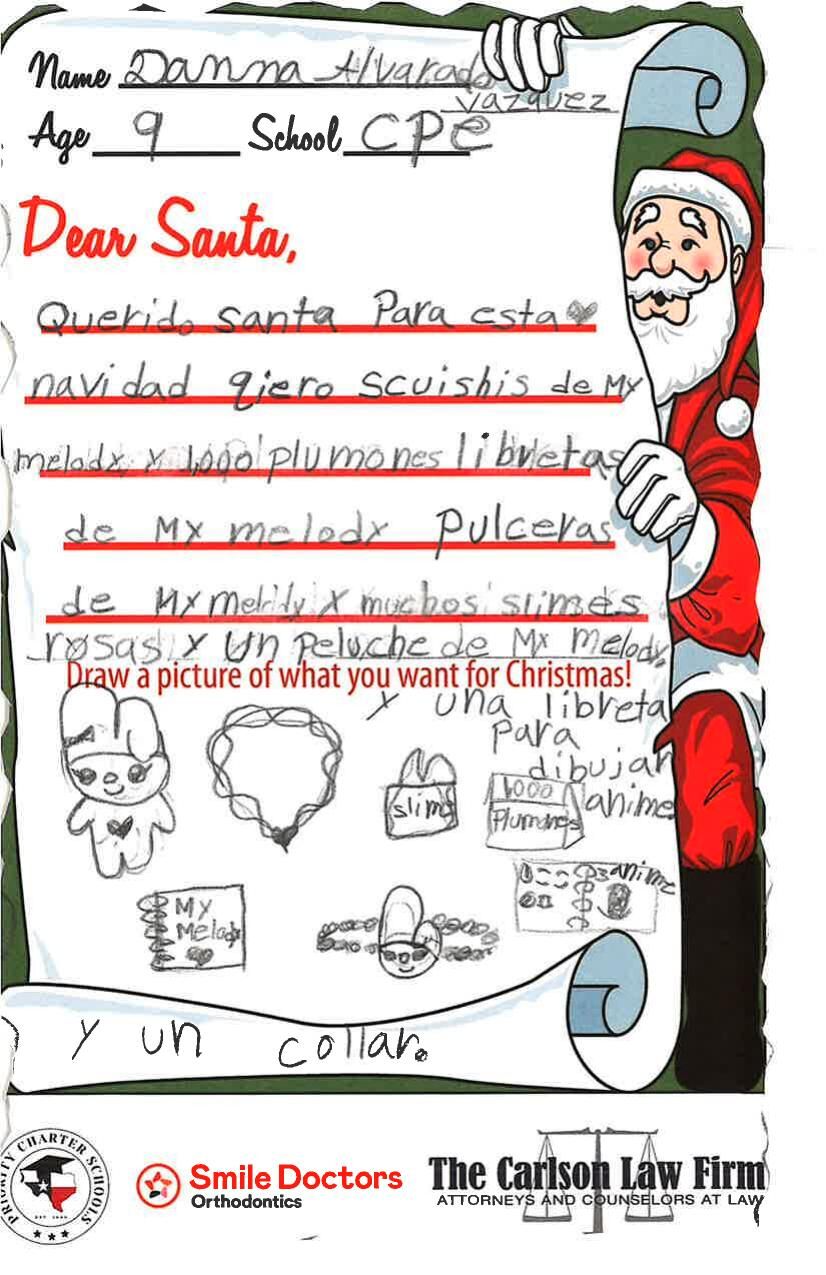 Name Danna Alvarado
vazquez
Age 9 School CPE
Dear Santa,
Querido santa Para esta
navidad qiero scuishis de My
melody y 1,000 plumones libretas
de My melody Pulceras
de My melody y muchos slimes
rosas y un peluche de My Melody,
Draw a picture of what you want for Christmas!
y una libreta
para
dibujar
anime
slime
1000
Plumones
My
Melody
anime
y un collar.
PRIORITY CHARTER SCHOOLS
Smile Doctors
Orthodontics
The Carlson Law Firm
ATTORNEYS AND COUNSELORS AT LAW